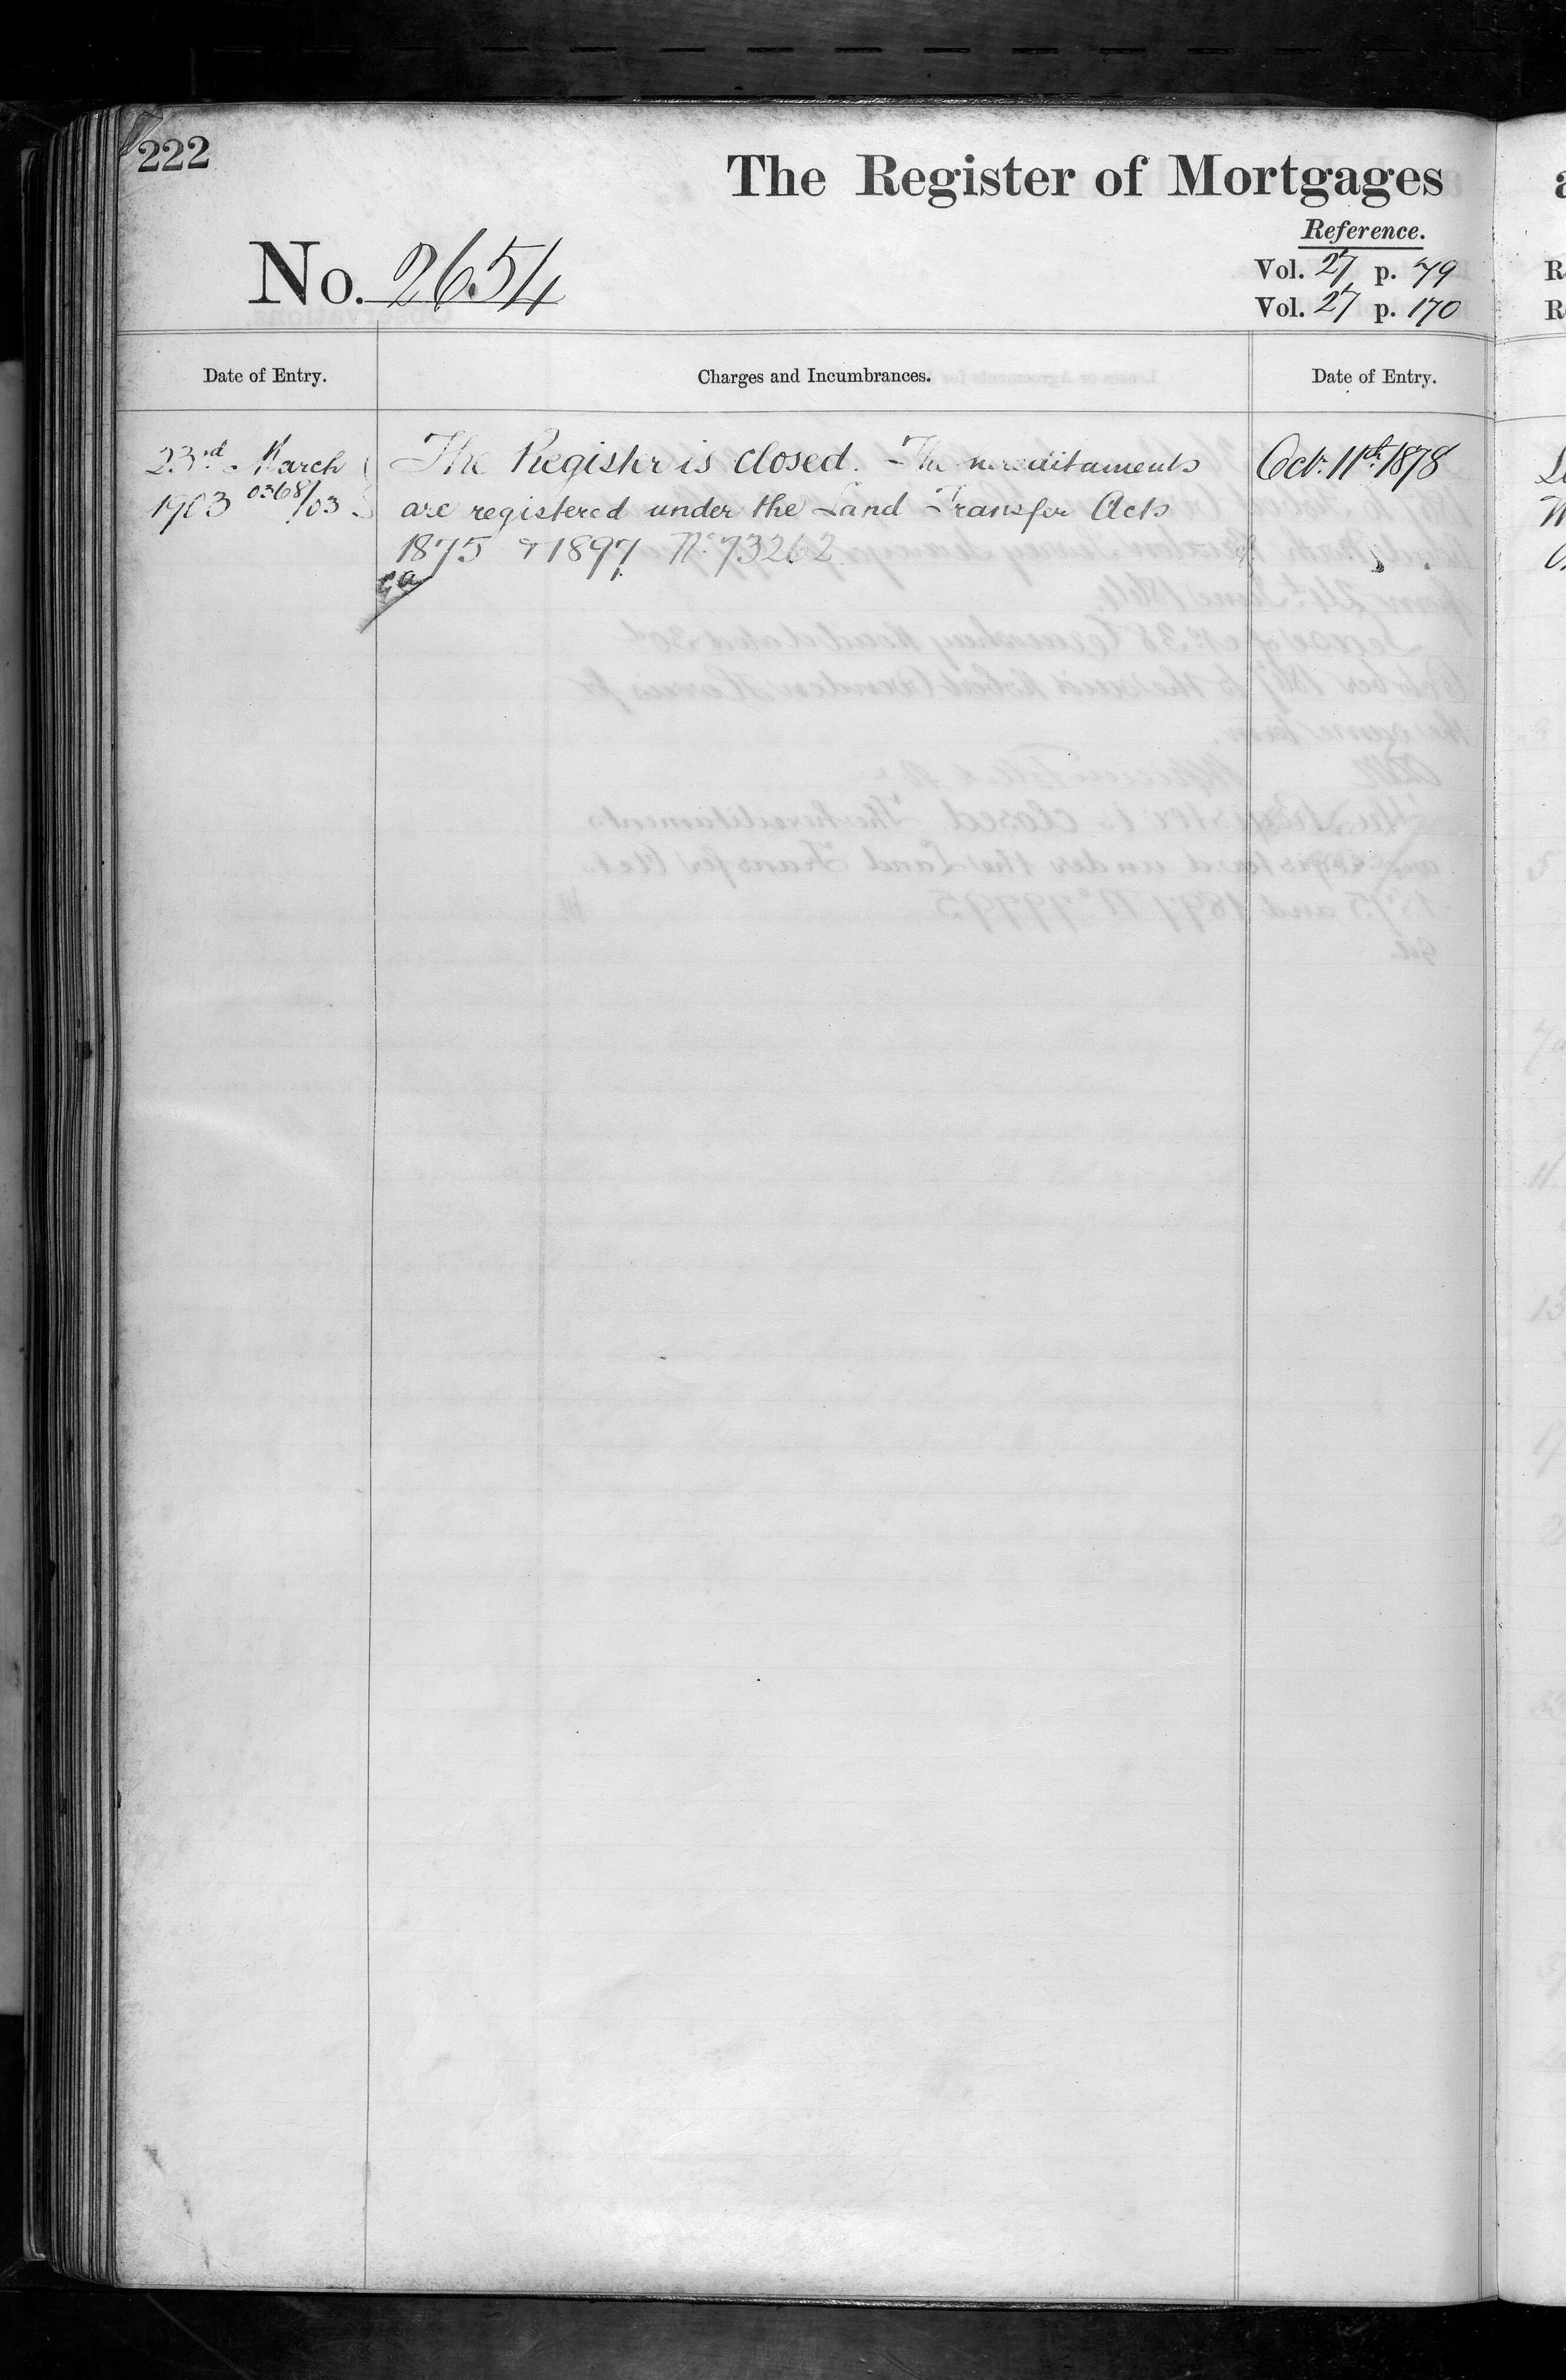 222
The Register of Mortgages
Reference.
No. 2654
Vol. 27 p. 79
Vol. 27 p. 170
Date of Entry.
Charges and Incumbrances.
Date of Entry.
23rd March
1903 0368/03
The Register is closed. The hereditaments
are registered under the Land Transfer Acts
1875 & 1897. No. 73262
Oct. 11th 1878